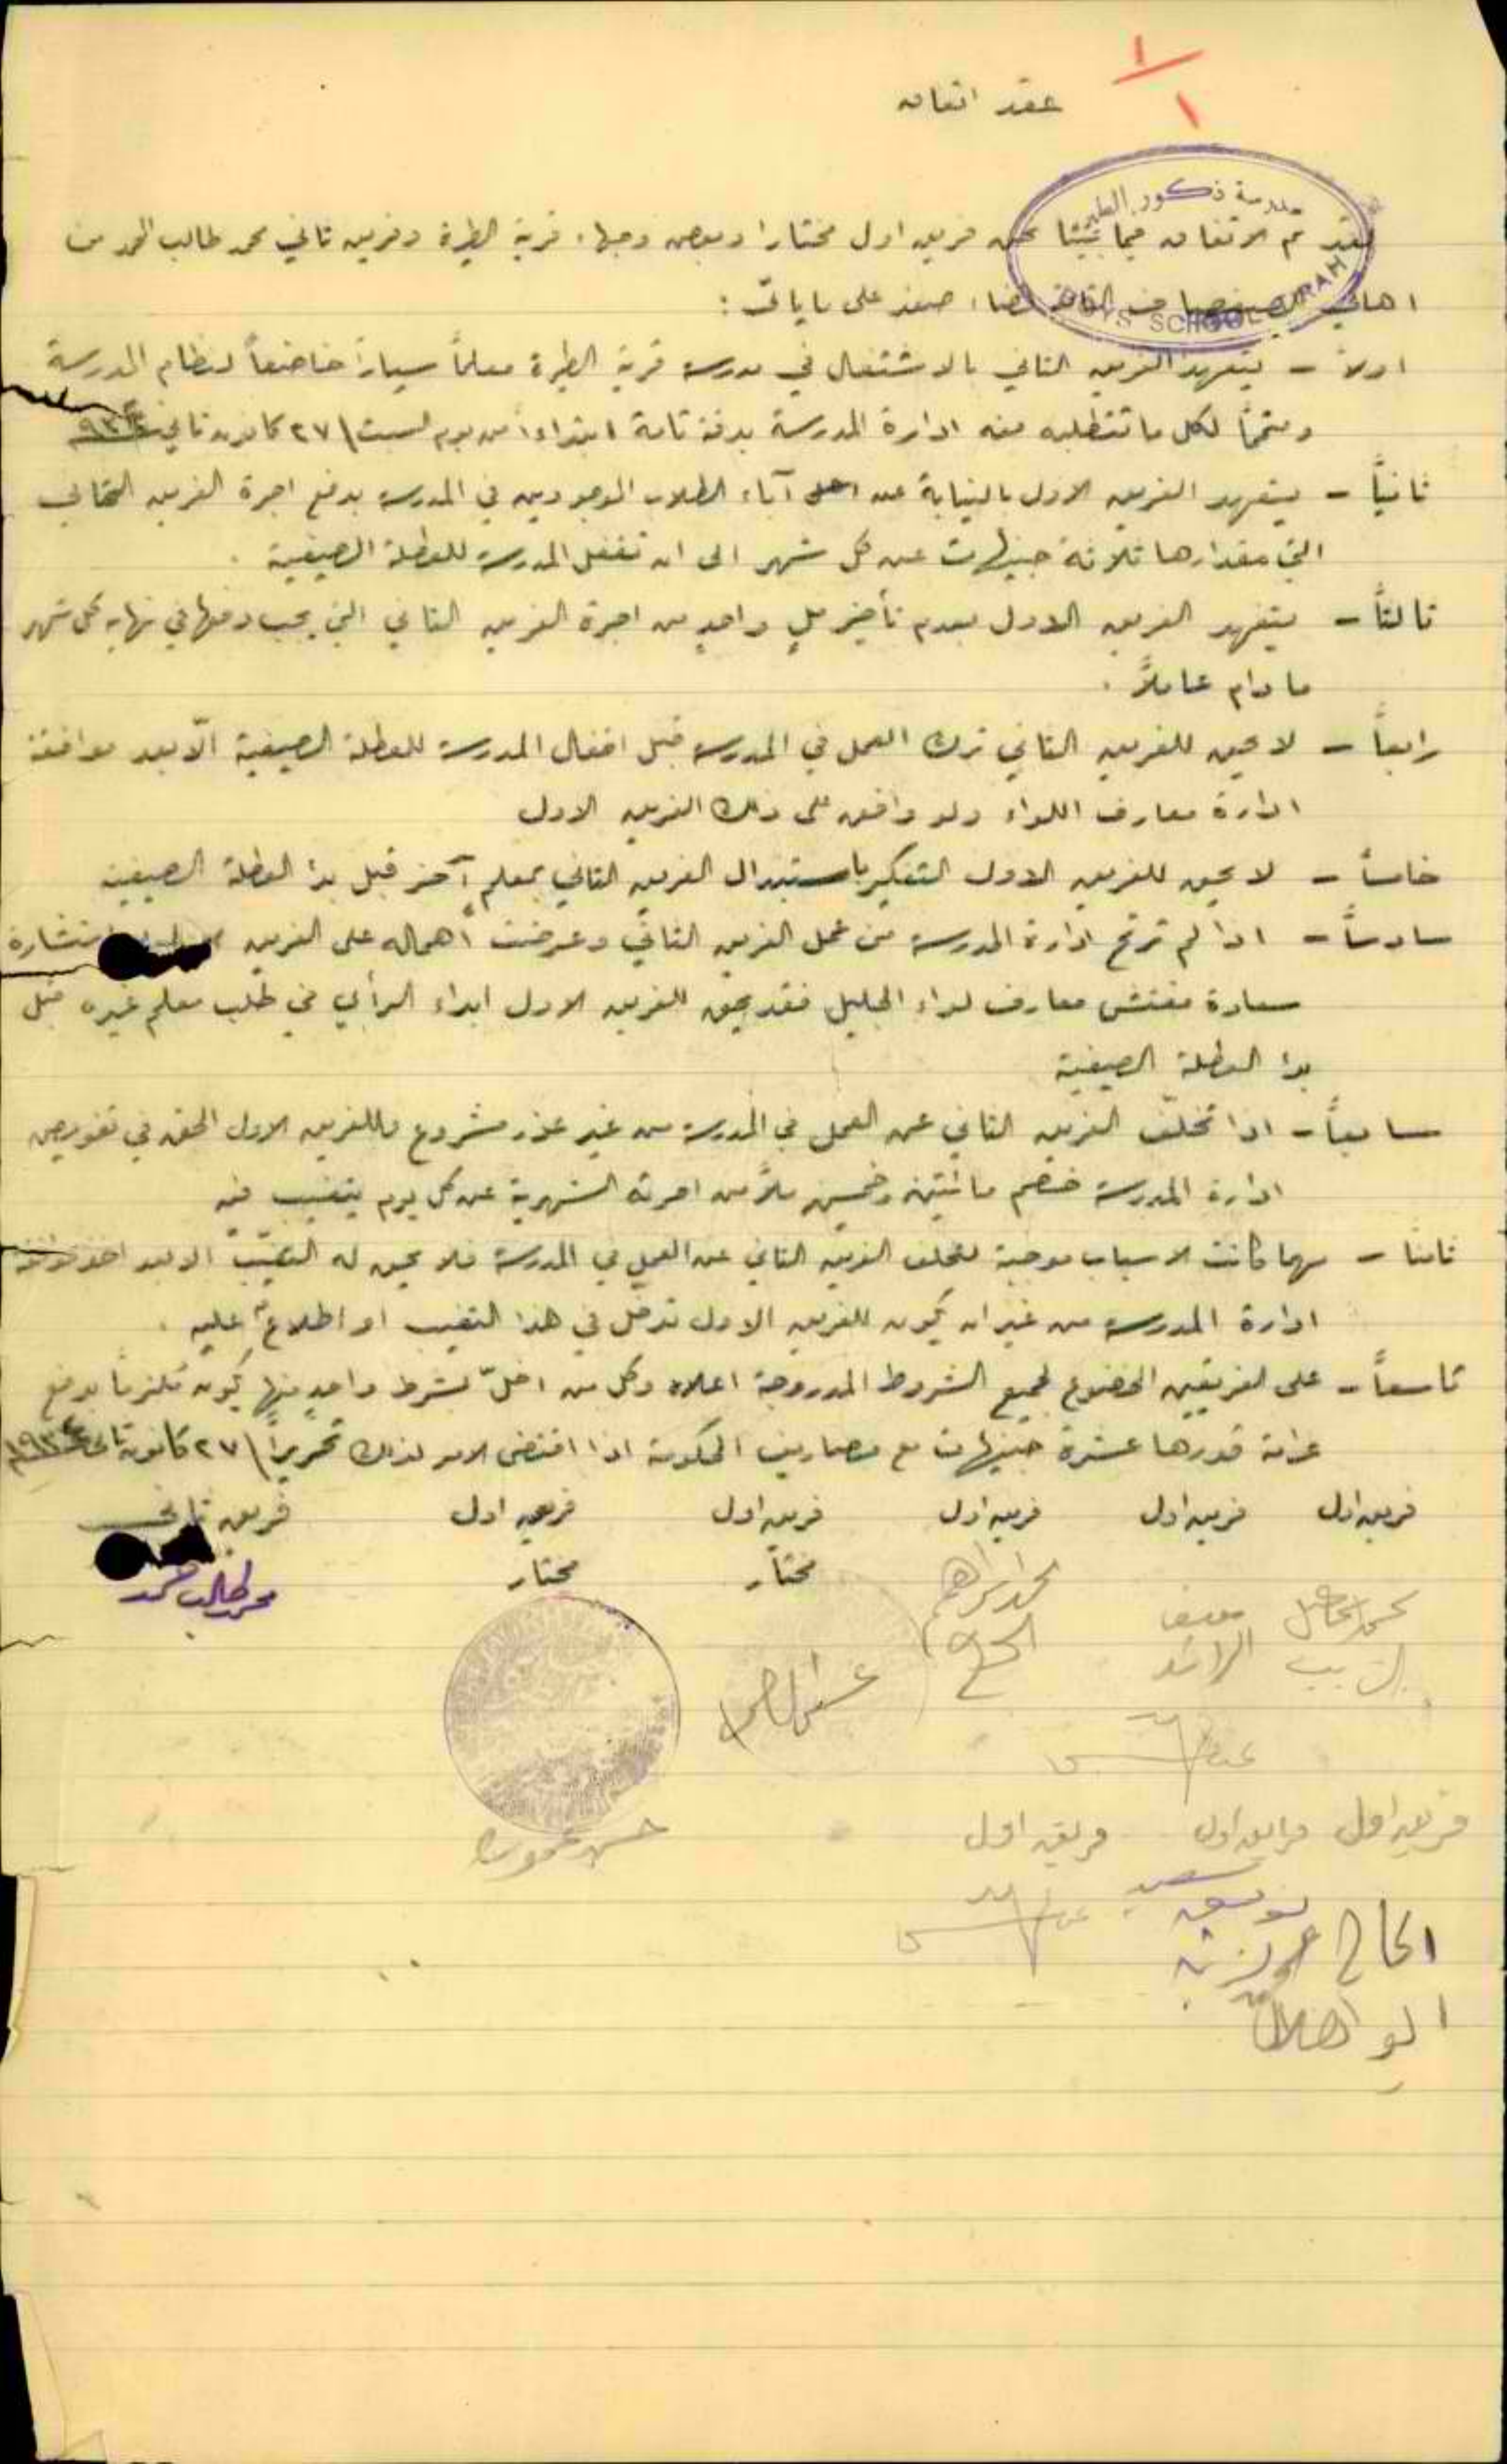 ١/١
عقد اتفاق
مدرسة ذكور الطيرة
BOYS SCHOOL TIRAH
لقد تم الاتفاق فيما بيننا نحن فريق اول مختارا وبعض وجهاء قرية الطيرة وفريق ثاني محمد طالب الحمد من
اهالي قضاء صفد على ما يأتي :
اولاً - يتعهد الفريق الثاني بالاشتغال في مدرسة قرية الطيرة معلماً سياراً خاضعاً لنظام المدرسة
ومتمماً لكل ما تتطلبه منه ادارة المدرسة بدقة تامة ابتداءاً من يوم السبت ٢٧ كانون ثاني
ثانياً - يتعهد الفريق الاول بالنيابة عن آباء الطلاب الموجودين في المدرسة بدفع اجرة الفريق الثاني
التي مقدارها ثلاثة جنيهات عن كل شهر الى ان تقفل المدرسة للعطلة الصيفية .
ثالثاً - يتعهد الفريق الاول بعدم تأخير ملٍ واحدٍ من اجرة الفريق الثاني التي يجب دفعها في نهاية كل شهر
ما دام عاملاً .
رابعاً - لا يحق للفريق الثاني ترك العمل في المدرسة قبل اقفال المدرسة للعطلة الصيفية الّا بعد موافقة
ادارة معارف اللواء ولو وافق على ذلك الفريق الاول
خامساً - لا يحق للفريق الاول التفكير باستبدال الفريق الثاني بمعلمٍ آخر قبل بدأ العطلة الصيفية
سادساً - اذا لم ترتح ادارة المدرسة من عمل الفريق الثاني وعرضت اهماله على الفريق استشارة
سعادة مفتش معارف لواء الجليل فقد يحق للفريق الاول ابداء الرأي في طلب معلم غيره قبل
بدأ العطلة الصيفية
سابعاً - اذا تخلّف الفريق الثاني عن العمل في المدرسة من غير عذر مشروع فللفريق الاول الحق في تفويض
ادارة المدرسة خصم مائتين وخمسين ملاً من اجرته الشهرية عن كل يوم يتغيب فيه
ثامناً - مهما كانت الاسباب موجبة لتخلف الفريق الثاني عن العمل في المدرسة فلا يحق له التغيّب الا بعد اخذ موافقة
ادارة المدرسة من غير ان يكون للفريق الاول تدخل في هذا التغيب او اطلاع عليه .
تاسعاً - على الفريقين الخضوع لجميع الشروط المدروجة اعلاه وكل من اخلّ بشرط واحدٍ منها يكون ملزماً بدفع
غرامة قدرها عشرة جنيهات مع مصاريف الحكومة اذا اقتضى الامر لذلك تحريراً ٢٧ كانون ثاني ١٩٣٤
فريق اول فريق اول فريق اول فريق اول فريق اول فريق ثاني
مختار مختار
محمد ابراهيم الحاج
محمد طالب حمد
حسن حمودة
فريق اول فريق اول فريق اول
الحاج